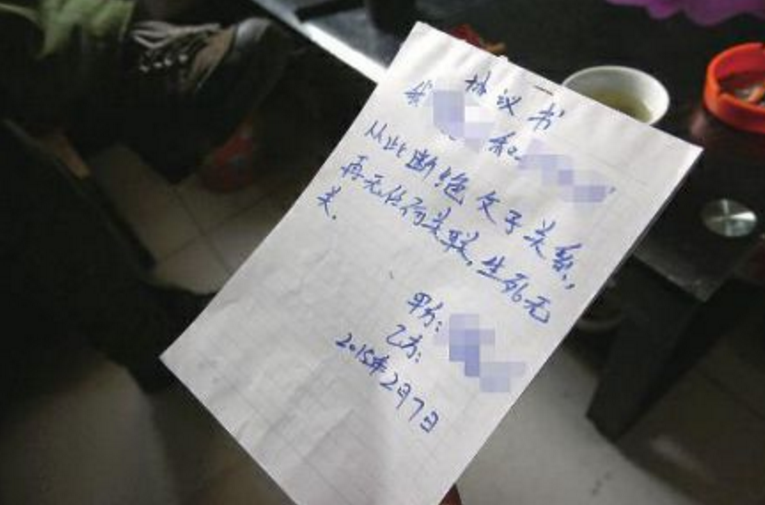 协议书
我 和
从此断绝父子关系,
再无任何关联,生死无
关.
甲方:
乙方:
2015年2月7日